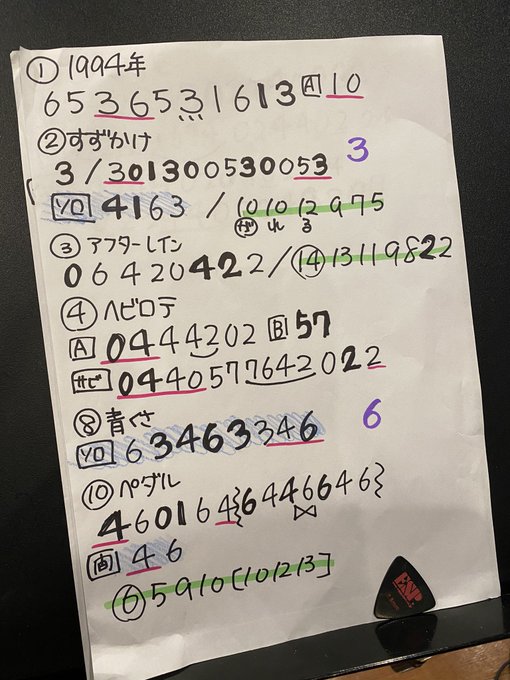 ① 1994年
65 3 6 5 3 1 6 1 3 A 10
② すずかけ
3 / 301300530053 3
ソロ 4163 / 10 10 12 9 7 5
れ る
③ アフターレイン
06420422 / ⑭ 13 11 9 8 2 2
④ ヘビロテ
A 0444202 B 57
サビ 04405777642022
⑧ 青くさ 6
ソロ 63463346
⑩ ペダル
460164 { 6446646 }
46
⑥ 5 9 10 [10 12 13]
ESP